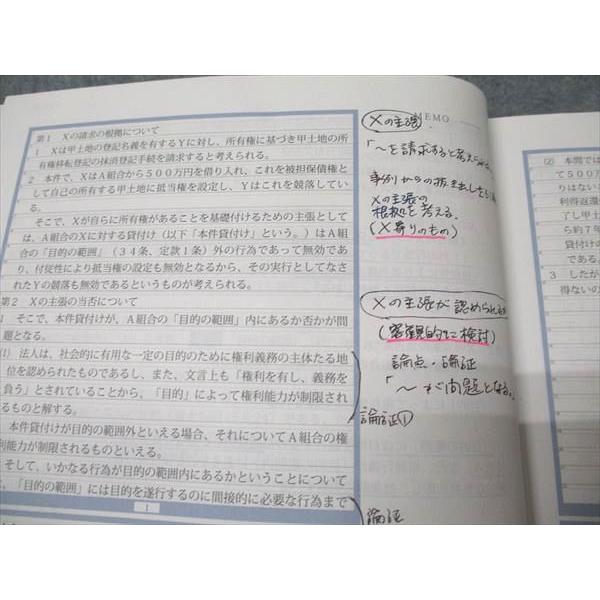 第1　Xの請求の根拠について
1　Xは甲土地の登記名義を有するYに対し、所有権に基づき甲土地の所
有権移転登記の抹消登記手続を請求すると考えられる。
2　本件で、XはA組合から500万円を借り入れ、これを被担保債権と
して自己の所有する甲土地に抵当権を設定し、Yはこれを競落してい
る。
そこで、Xが自らに所有権があることを基礎付けるための主張とし
ては、A組合のXに対する貸付け(以下「本件貸付け」という。)はA組
合の「目的の範囲」(34条、定款1条)外の行為であって無効であ
り、付従性により抵当権の設定も無効となるから、その実行としてなさ
れたYの競落も無効であるというものが考えられる。
第2　Xの主張の当否について
1　そこで、本件貸付けが、A組合の「目的の範囲」内にあるか否かが問
題となる。
(1)　法人は、社会的に有用な一定の目的のために権利義務の主体たる地
位を認められたものであるし、また、文言上も「権利を有し、義務を
負う」とされていることから、「目的」によって権利能力が制限され
るものと解する。
本件貸付けが目的の範囲外といえる場合、それについてA組合の権
利能力が制限されるものといえる。
そして、いかなる行為が目的の範囲内にあるかということについて
、「目的の範囲」には目的を遂行するのに間接的に必要な行為まで
1
MEMO
Xの主張
「〜を請求すると考えられ
事例からの抜き出し
Xの主張の
根拠を考える。
(X寄りのもの)
Xの主張が認められるか
(客観的に検討)
論点・論証
「〜が問題となる。
論証①
論証
(2)　本間では
て500万
りはない
利得返還
了し甲土
ら約7年
貸付けの
である。
3　したが
得ないの